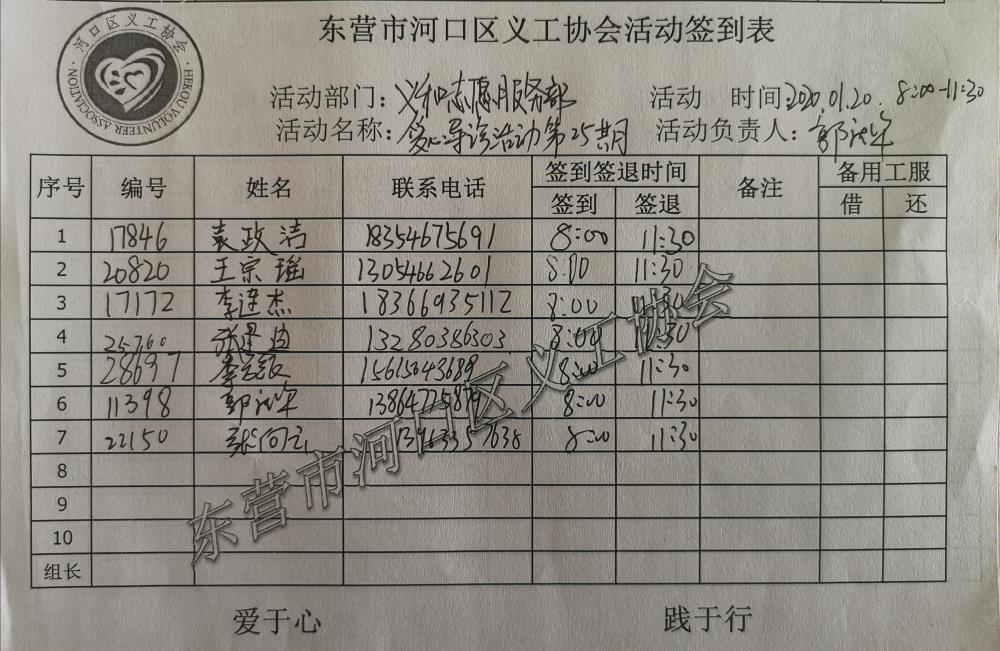 东营市河口区义工协会活动签到表
·河口区义工协会·
HEKOU VOLUNTEER ASSOCIATION
活动部门：义和志愿服务部 活动 时间：2020.01.20. 8:00-11:30
活动名称：爱心导诊活动第25期 活动负责人：郭
序号 编号 姓名 联系电话 签到签退时间 备注 备用工服
签到 签退 借 还
1 17846 袁政洁 18354675691 8:00 11:30
2 20820 王宗瑶 13054662601 8:00 11:30
3 17172 李连杰 18366935112 8:00 11:30
4 25760 13280386303 8:00 11:30
5 28697 李 15615643689 8:00 11:30
6 11398 郭 8:00 11:30
7 22150 张 8:00 11:30
8
9
10
组长
东营市河口区义工协会
爱于心 践于行